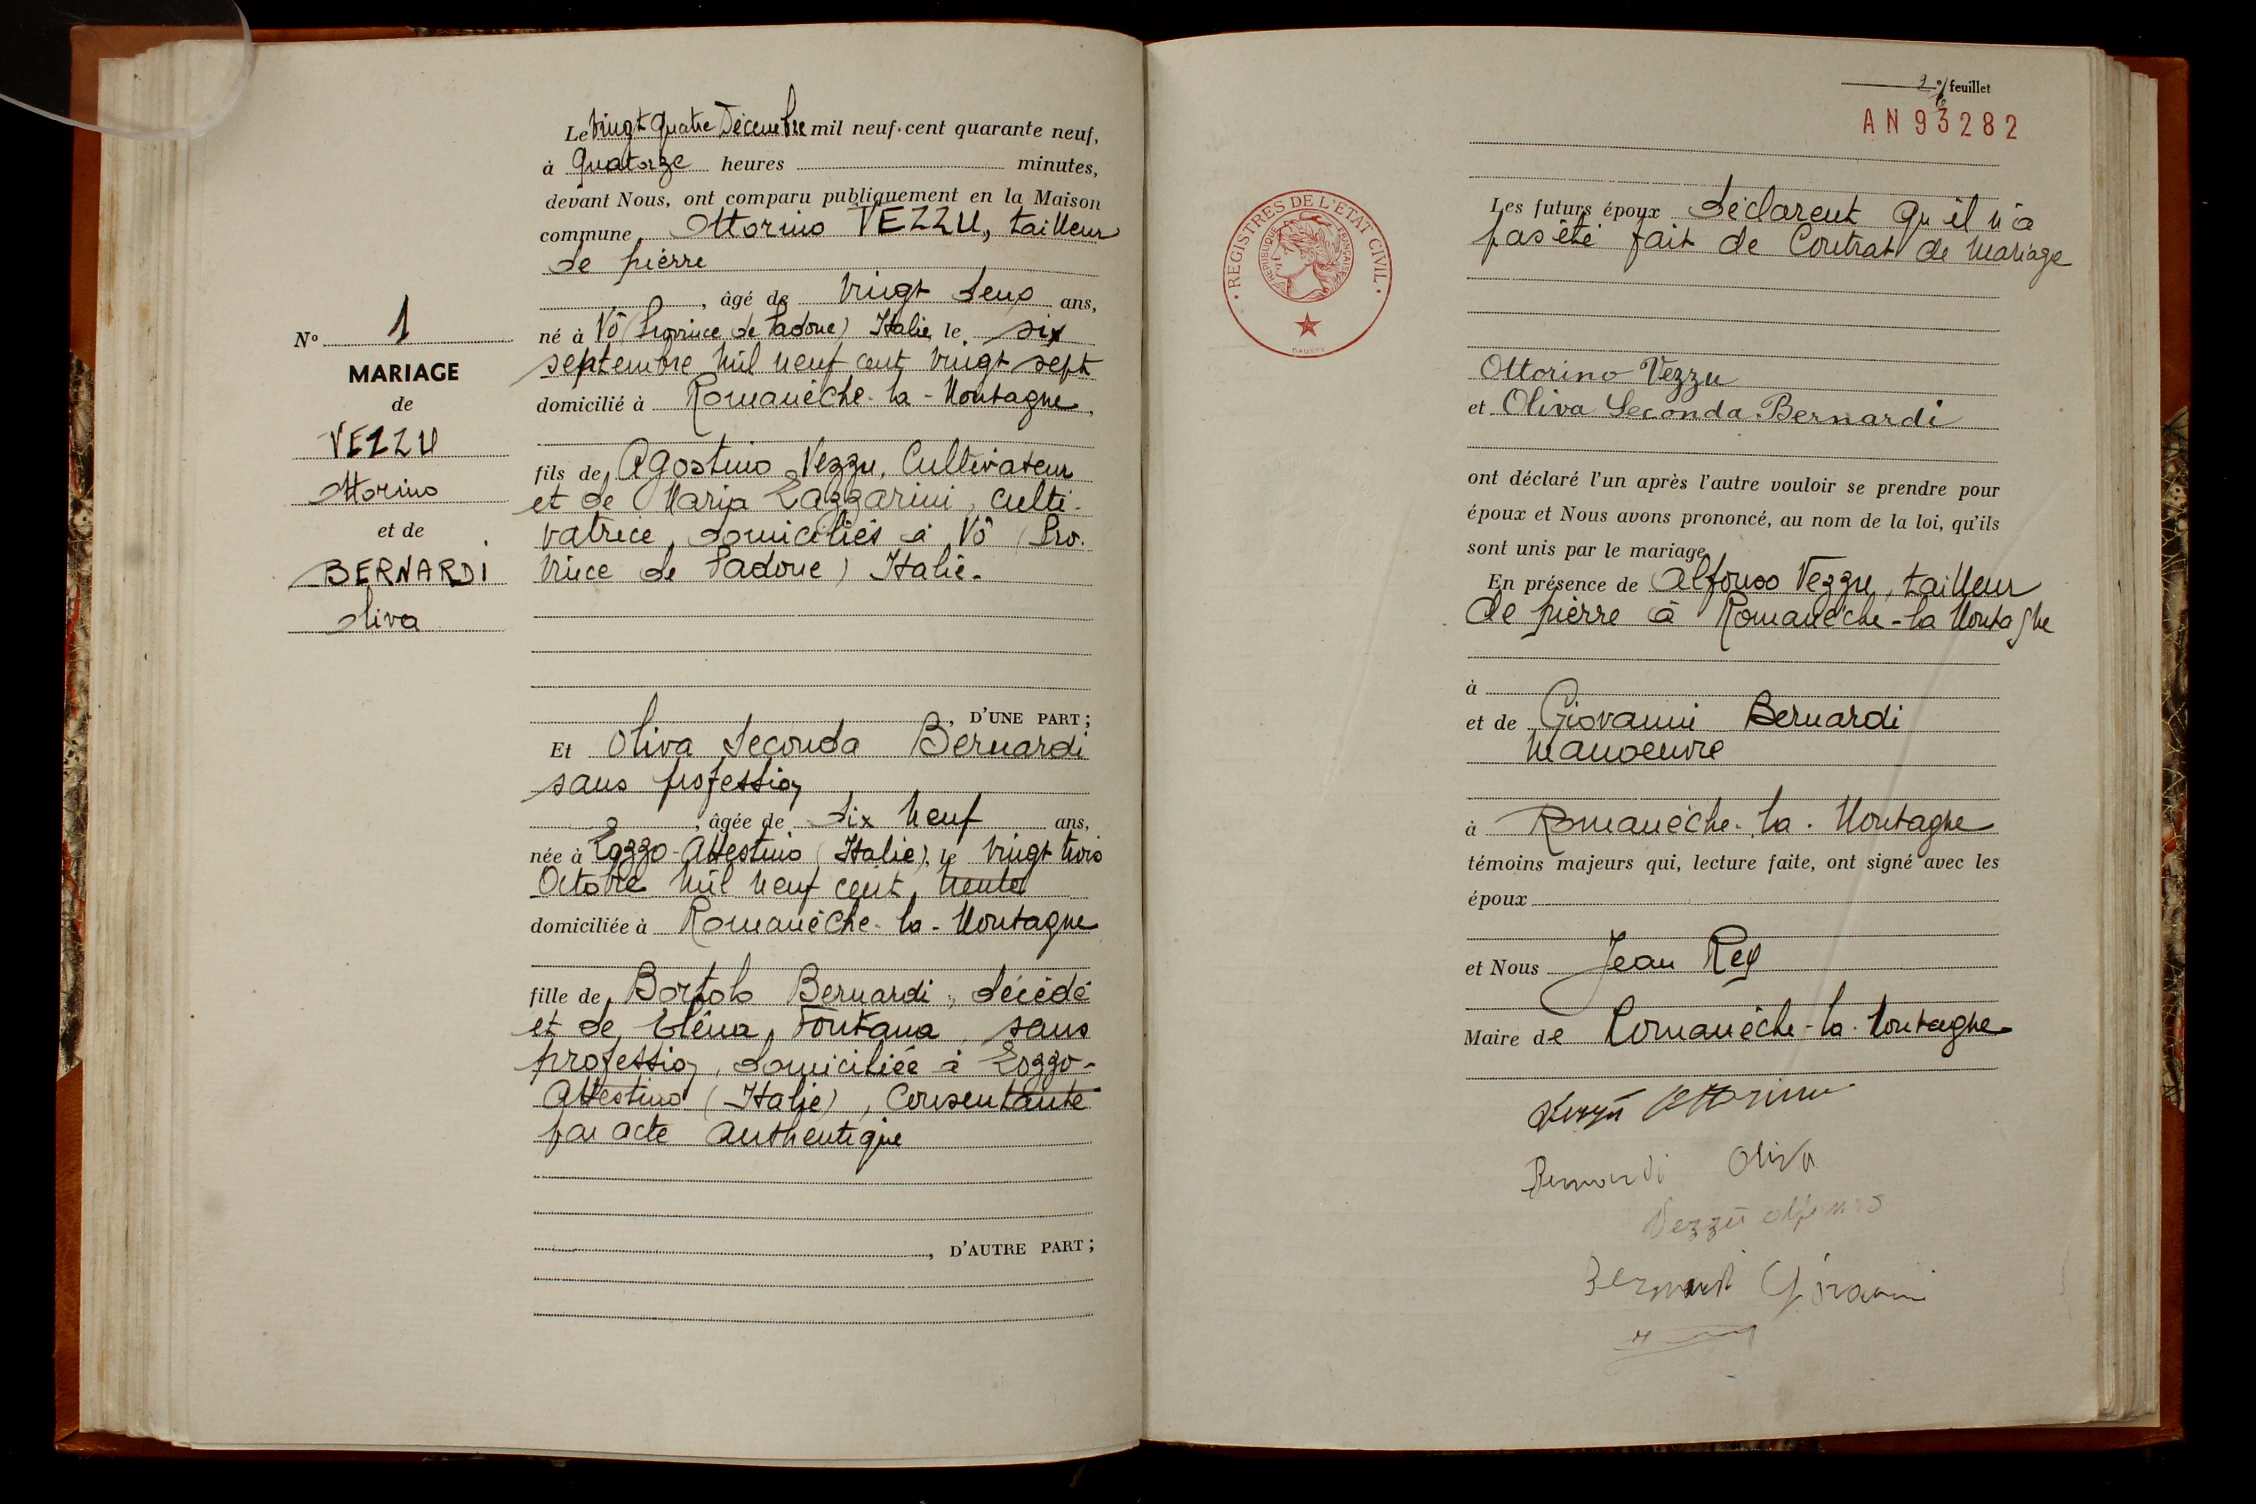 Le vingt quatre Décembre mil neuf cent quarante neuf,
à quatorze heures minutes,
devant Nous, ont comparu publiquement en la Maison
commune Ottorino VEZZU, tailleur
de pierre
, âgé de vingt deux ans,
né à Vô (Province de Padoue) Italie, le six
septembre mil neuf cent vingt sept
domicilié à Romanèche-la-Montagne,
fils de Agostino Vezzu, Cultivateur
et de Maria Lazzarini, culti-
vatrice, domiciliés à Vô (Pro-
vince de Padoue) Italie.
, D'UNE PART ;
N° 1
MARIAGE
de
VEZZU
Ottorino
et de
BERNARDI
Oliva
Et Oliva Seconda Bernardi
sans profession
, âgée de dix neuf ans,
née à Lozzo-Attestino (Italie), le vingt trois
Octobre mil neuf cent trente
domiciliée à Romanèche-la-Montagne
fille de Bortolo Bernardi, décédé
et de Eléna Fontana, sans
profession, domiciliée à Lozzo-
Attestino (Italie), Consentante
par acte authentique
, D'AUTRE PART ;
feuillet
AN93282
REGISTRES DE L'ETAT CIVIL
REPUBLIQUE FRANÇAISE
Les futurs époux déclarent qu'il n'a
pas été fait de Contrat de mariage
Ottorino Vezzu
et Oliva Seconda Bernardi
ont déclaré l'un après l'autre vouloir se prendre pour
époux et Nous avons prononcé, au nom de la loi, qu'ils
sont unis par le mariage
En présence de Alfonso Vezzu, tailleur
de pierre à Romanèche-la Montagne
à
et de Giovanni Bernardi
manoeuvre
à Romanèche-la-Montagne
témoins majeurs qui, lecture faite, ont signé avec les
époux
et Nous Jean Rey
Maire de Romanèche-la-Montagne
Vezzù Ottorino
Bernardi Oliva
Vezzù Alfonso
Bernardi Giovanni